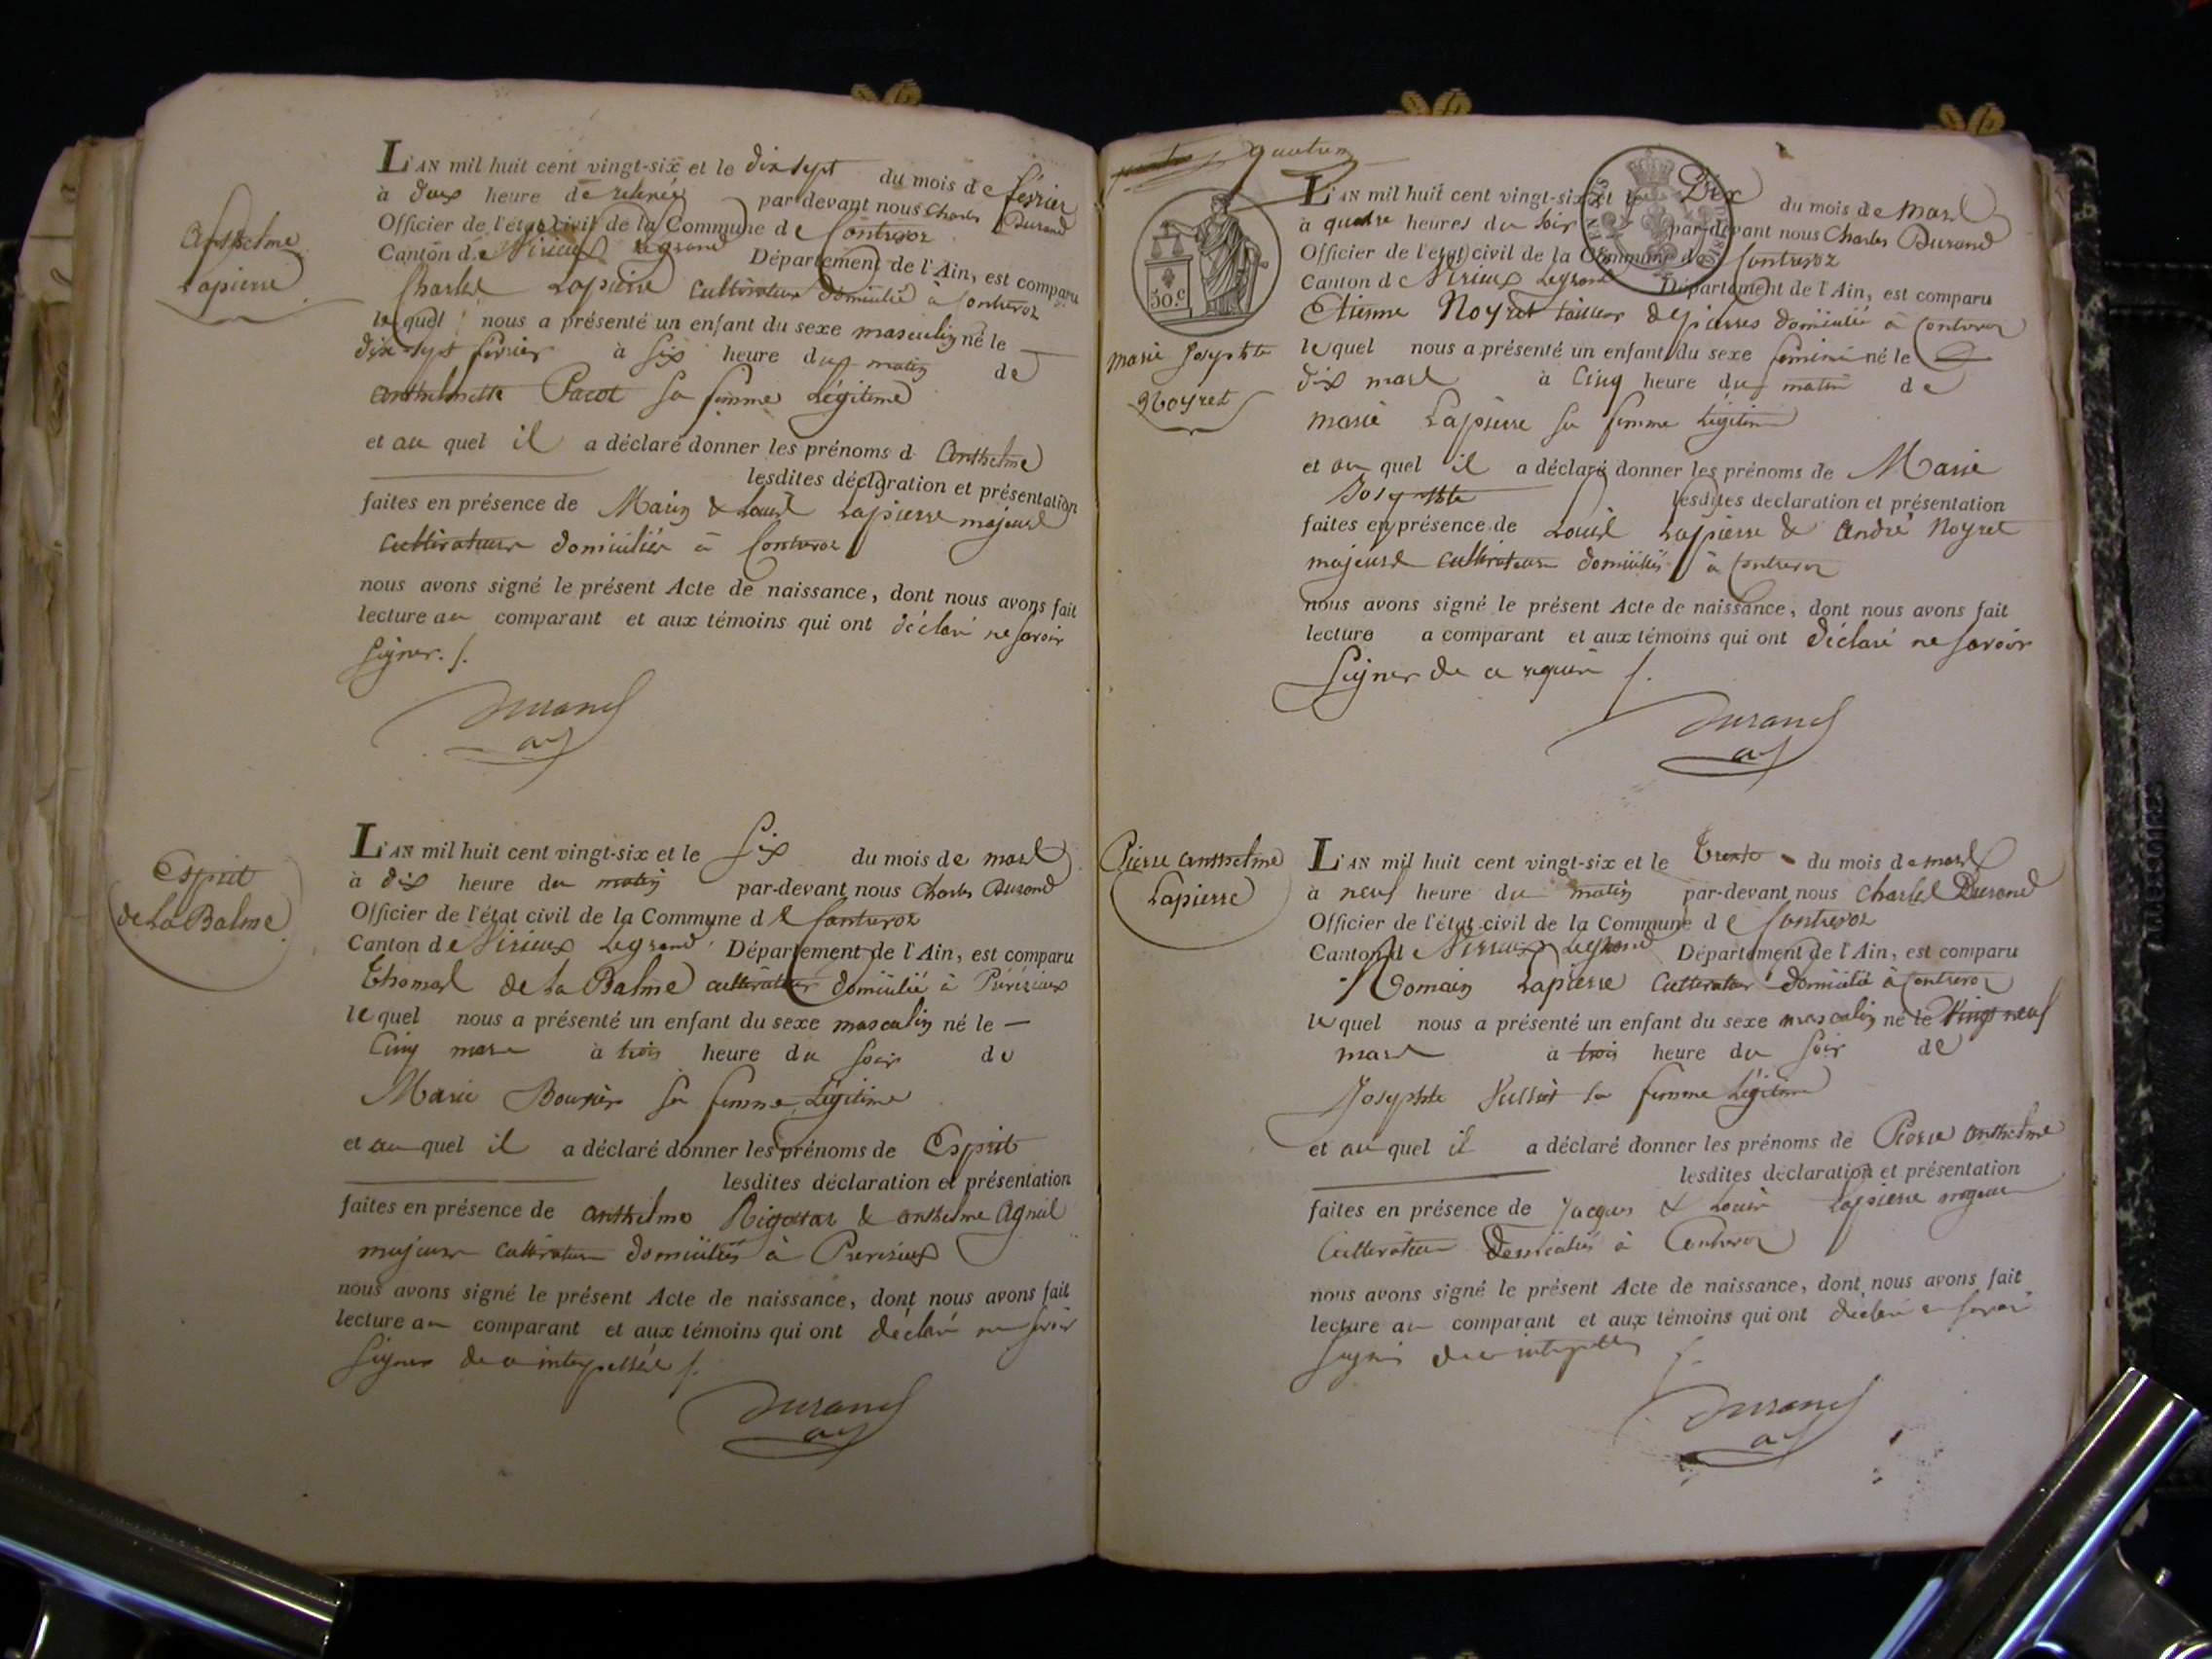 Anthelme
Lapierre
L'AN mil huit cent vingt-six et le dix sept du mois de février
à deux heure de relevée par-devant nous Charles Durand
Officier de l'état civil de la Commune de Contrevoz
Canton de Virieux Legrand Département de l'Ain, est comparu
Charles Lapierre cultivateur domicilié à Contrevoz
lequel nous a présenté un enfant du sexe masculin né le
dix sept février à six heure du matin de
anthelmette Pacot sa femme Légitime
et au quel il a déclaré donner les prénoms d anthelme
lesdites déclaration et présentation
faites en présence de Marin & Louis Lapierre majeurs
cultivateurs domiciliés à Contrevoz
nous avons signé le présent Acte de naissance, dont nous avons fait
lecture au comparant et aux témoins qui ont déclaré ne savoir
signer.
Durand
Esprit
de La Balme
L'AN mil huit cent vingt-six et le Six du mois de mars
à dix heure du matin par-devant nous Charles Durand
Officier de l'état civil de la Commune de Contrevoz
Canton de Virieux Legrand Département de l'Ain, est comparu
Thomas de La Balme cultivateur domicilié à
lequel nous a présenté un enfant du sexe masculin né le
Cinq mars à trois heure du soir de
Marie sa femme Légitime
et au quel il a déclaré donner les prénoms de Esprit
lesdites déclaration et présentation
faites en présence de anthelme & anthelme
majeurs cultivateurs domiciliés à
nous avons signé le présent Acte de naissance, dont nous avons fait
lecture au comparant et aux témoins qui ont déclaré ne savoir
signer de ce
Durand
50.c
marie Josephte
Noyret
L'AN mil huit cent vingt-six et le Dix du mois de Mars
à quatre heures du soir par-devant nous Charles Durand
Officier de l'état civil de la Commune de Contrevoz
Canton de Virieux Legrand Département de l'Ain, est comparu
Etienne Noyret tailleur de pierres domicilié à Contrevoz
lequel nous a présenté un enfant du sexe féminin né le
dix mars à Cinq heure du matin de
marie Lapierre sa femme Légitime
et au quel il a déclaré donner les prénoms de Marie
Josephte lesdites déclaration et présentation
faites en présence de Louis Lapierre & André Noyret
majeurs cultivateurs domiciliés à Contrevoz
nous avons signé le présent Acte de naissance, dont nous avons fait
lecture a comparant et aux témoins qui ont déclaré ne savoir
Signer de ce requis
Durand
Pierre anthelme
Lapierre
L'AN mil huit cent vingt-six et le trente du mois de mars
à neuf heure du matin par-devant nous Charles Durand
Officier de l'état civil de la Commune de Contrevoz
Canton de Virieux Legrand Département de l'Ain, est comparu
Romain Lapierre Cultivateur domicilié à Contrevoz
lequel nous a présenté un enfant du sexe masculin né le Vingt neuf
mars à trois heure du soir de
Josephte sa femme Légitime
et au quel il a déclaré donner les prénoms de Pierre anthelme
lesdites déclaration et présentation
faites en présence de Jacques & Louis Lapierre majeurs
Cultivateurs Domiciliés à Contrevoz
nous avons signé le présent Acte de naissance, dont nous avons fait
lecture au comparant et aux témoins qui ont déclaré ne savoir
signer
Durand